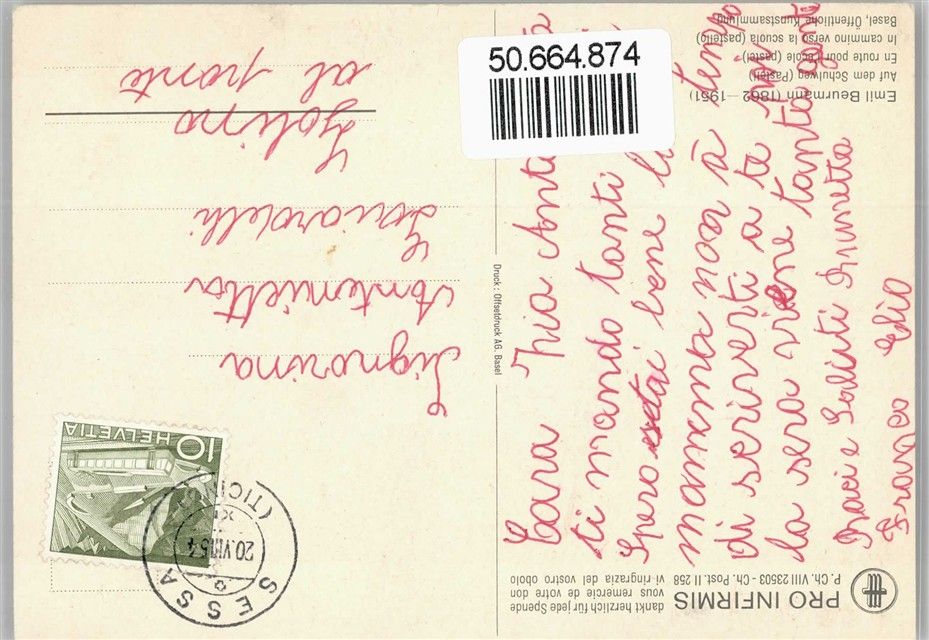 50.664.874
Emil Beurmann (1862—1951)
Auf dem Schulweg (Pastell)
En route pour l'école (pastel)
In cammino verso la scuola (pastello)
Basel, Öffentliche Kunstsammlung
Cara Zia Anto
ti mando tanti
Spero stai bene la
mamma non à tempo
di scriverti a te per
la sera viene tanta gente
Baci e Saluti Brunetta
Franco Elio
Signorina
Antonietta
Golino
al ponte
Druck: Offsetdruck AG. Basel
PRO INFIRMIS
P. Ch. VIII 23503 - Ch. Post. II 258
dankt herzlich für jede Spende
vous remercie de votre don
vi ringrazia del vostro obolo
10 HELVETIA
SESSA
(TICINO)
20.VIII.54